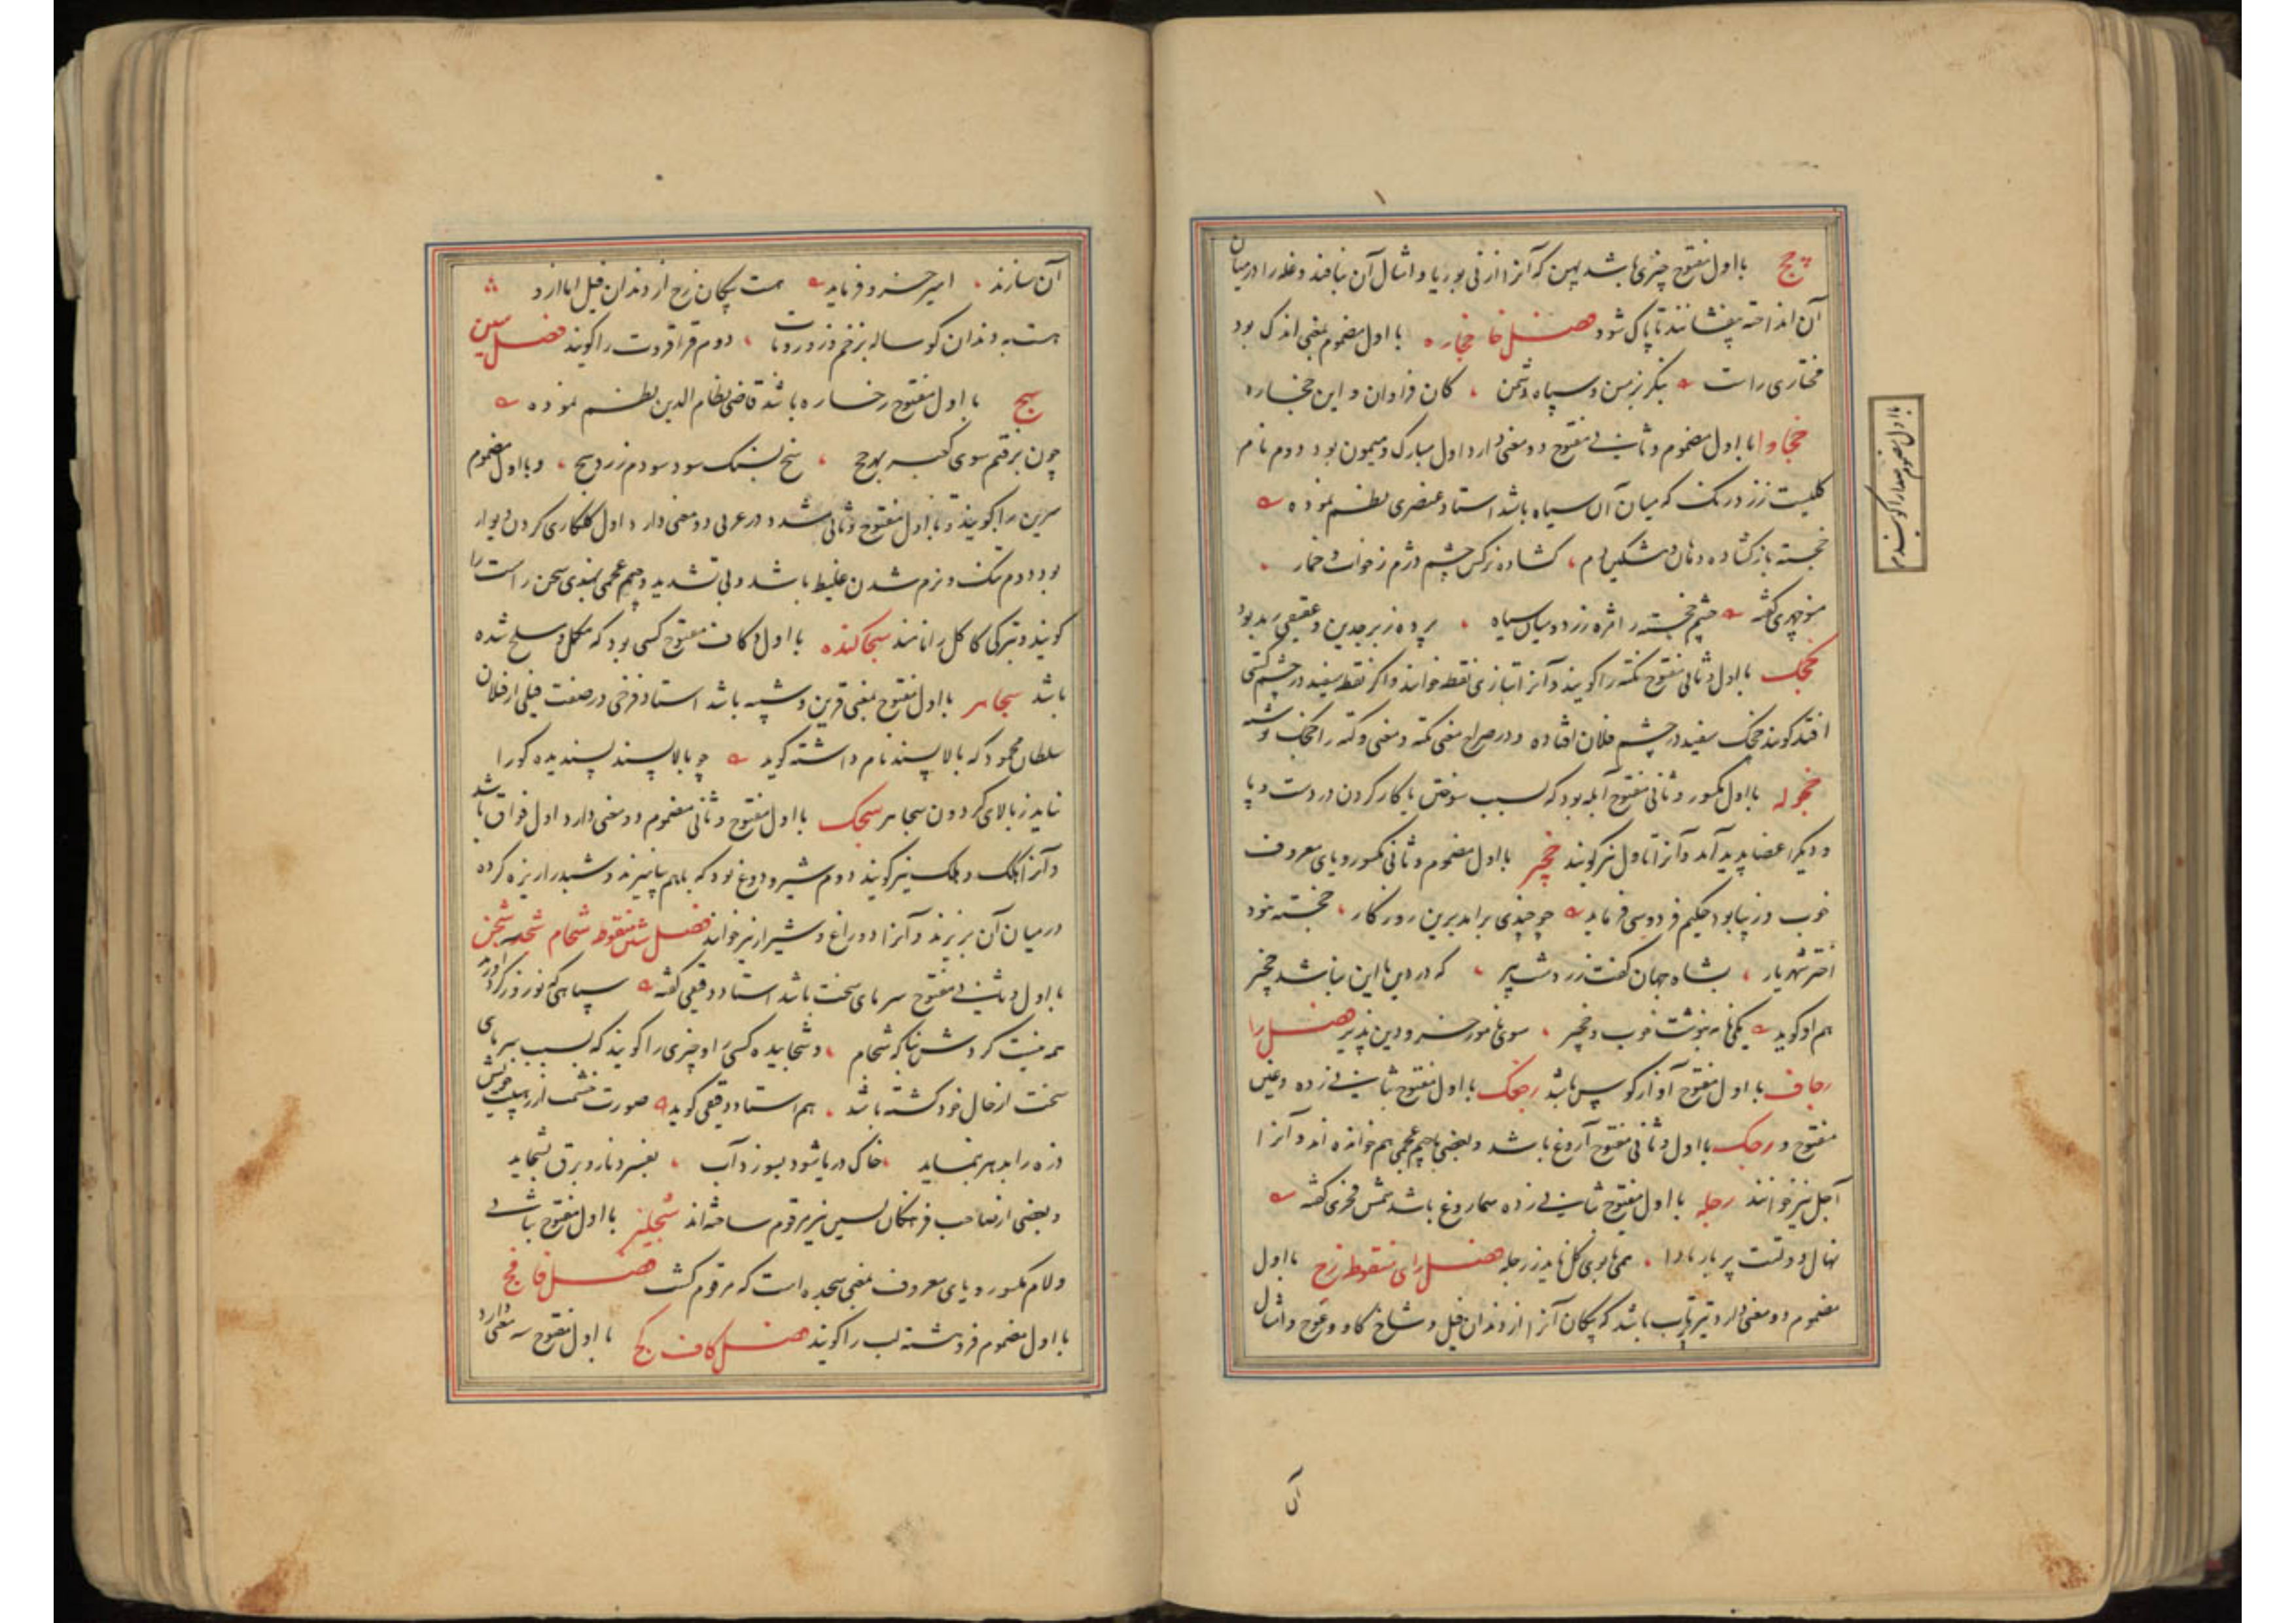 چج با اول مفتوح چیزی باشد پهن که آنرا از نی بوریا و امثال آن ببافند و غله را در میان
آن انداخته بیفشانند تا پاک شود فصل خا خجاره با اول مضموم بمعنی اندک بود
مختاری راست بنگر بزمن و سپاه دشمن کان فراوان و این خجاره
خجاوا با اول مضموم و ثانی مفتوح دو معنی دارد اول مبارک و میمون بود دوم نام
گلیست زرد رنگ که میان آن سیاه باشد استاد عنصری نظم نموده
خجسته باز گشاده دهان مشکین دم گشاده نرگس چشم دژم ز خواب و خمار
منوچهری گفته چشم خجسته را مژه زرد و میان سیاه پرده زبرجدین و عقیقی رمد بود
خجک با اول و ثانی مفتوح نکته را گویند و آنرا بتازی نقطه خوانند و اگر نقطه سفید در چشم کسی
افتد گویند خجک سفید در چشم فلان افتاده و در صراح معنی نکته و معنی وکته را خجک نوشته
خجوله با اول مکسور و ثانی مفتوح آبله بود که بسبب سوختن یا کار کردن در دست و پا
و دیگر اعضا پدید آمد و آنرا تاول نیز گویند خجیر با اول مضموم و ثانی مکسور و یای معروف
خوب و زیبا بود حکیم فردوسی فرماید چو چندی برآمد برین روزگار خجسته نبود
اختر شهریار بشاه جهان گفت زردشت پیر که در دین ما این نباشد خجیر
هم او گوید یکی نامه بنوشت خوب و خجیر سوی نامور خسرو دین پذیر فصل را
رجاف با اول مفتوح آواز کوس باشد رجک با اول مفتوح بثانی زده و غین
مفتوح و رجک با اول و ثانی مفتوح آروغ باشد و بعضی با جیم عجمی هم خوانده اند و آنرا
آجل نیز خوانند رجله با اول مفتوح بثانی زده سماروغ باشد شمس فخری گفته
نهال دولتت پر بار بادا همی تا بوی گل ناید ز رجله فصل زای منقوطه زج با اول
مضموم دو معنی دارد تیر پرتاب باشد که پیکان آنرا از دندان فیل و شاخ گاو و عوج و امثال
با اول مضموم معدار گویند
آن
آن سازند امیر خسرو فرماید هست پیکان زج از دندان فیل اما ازو
هست به دندان گوساله بزخم زور و تاب دوم قراقروت را گویند فصل سین
سج با اول مفتوح رخساره باشد قاضی نظام الدین نظم نموده
چون برفتم سوی بهرجج سج بسنگ سود سودم زرد سج و با اول مضموم
سرین را گویند و با اول مفتوح و ثانی مشدد در عربی دو معنی دارد اول گلکاری کردن دیوار
بود دوم تنک و نرم شدن غلیظ باشد و بی تشدید و جیم عجمی بهندی سخن راست را
گویند و بترکی کاکل را نامند سجاکنده با اول و کاف مفتوح کسی بود که مکمل و مسلح شده
باشد سجاسر با اول مفتوح بمعنی قرین و شبیه باشد استاد فرخی در صفت فیلی از فیلان
سلطان محمود که بالا پسند نام داشته گوید چو بالا پسند پسندیده کورا
نباید ز بالای گردون سجاسر سجک با اول مفتوح و ثانی مضموم دو معنی دارد اول فواق باشد
و آنرا هکک و هلک نیز گویند دوم شیر و دوغ بود که باهم بیامیزند و شبد را ریزه کرده
در میان آن بریزند و آنرا دوراغ و شیراز نیز خوانند فصل شین منقوطه شجام شجد شجن
با اول و ثانی مفتوح سرمای سخت باشد استاد دقیقی گفته سپاهی که نوروز گرد آورید
همه نیست کردش بناگه شجام و شجاییده کسی را و چیزی را گویند که بسبب سرمای
سخت از حال خود گشته باشد هم استاد دقیقی گوید صورت خشمت از هیبت خویش
ذره را بدهر بنماید خاک دریا شود بسوزد آب بفسرد نار و برق بشجاید
و بعضی از صاحب فرهنگان بسین نیز مرقوم ساخته اند شجلیز با اول مفتوح بثانی
و لام مکسور و یای معروف بمعنی شجده است که مرقوم گشت فصل فا فج
با اول مضموم فروهشته لب را گویند فصل کاف کج با اول مفتوح سه معنی دارد